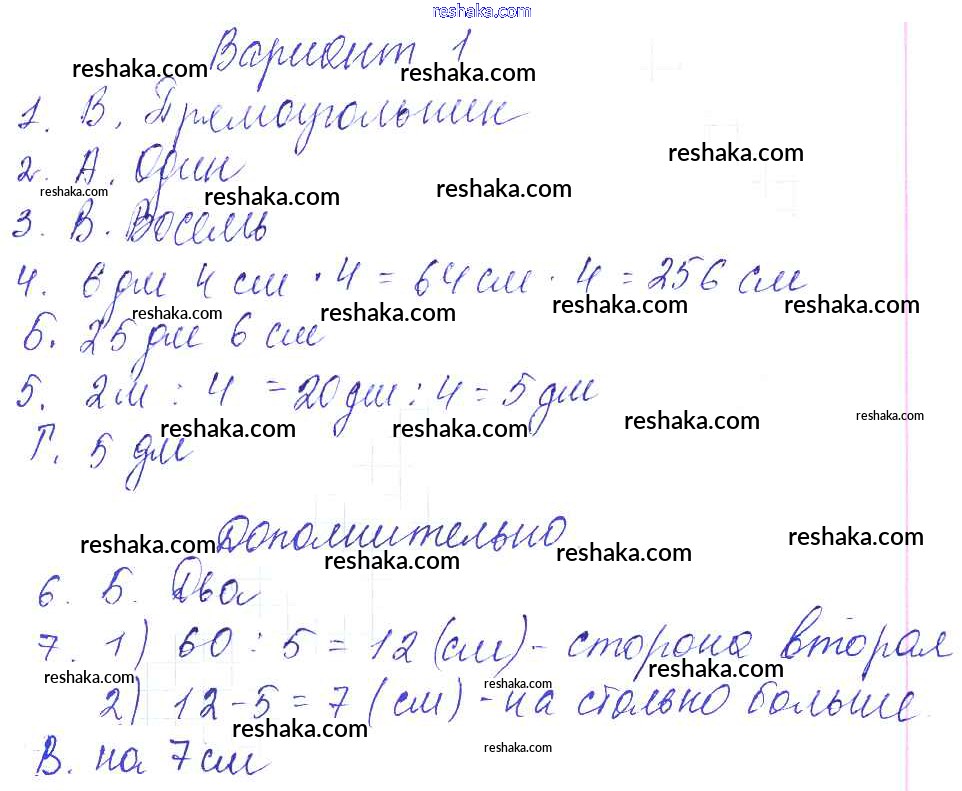 reshaka.com
Вариант 1
reshaka.com reshaka.com
1. В. Прямоугольник
reshaka.com
2. А. Один
reshaka.com reshaka.com reshaka.com
3. В. Восемь
4. 6 дм 4 см · 4 = 64 см · 4 = 256 см
reshaka.com reshaka.com reshaka.com reshaka.com
Б. 25 дм 6 см
5. 2 м : 4 = 20 дм : 4 = 5 дм
reshaka.com reshaka.com reshaka.com reshaka.com
Г. 5 дм
Дополнительно
reshaka.com reshaka.com reshaka.com reshaka.com
6. Б. Два
7. 1) 60 : 5 = 12 (см) - сторона вторая
reshaka.com reshaka.com reshaka.com
2) 12 - 5 = 7 (см) - на столько больше
reshaka.com reshaka.com
В. на 7 см